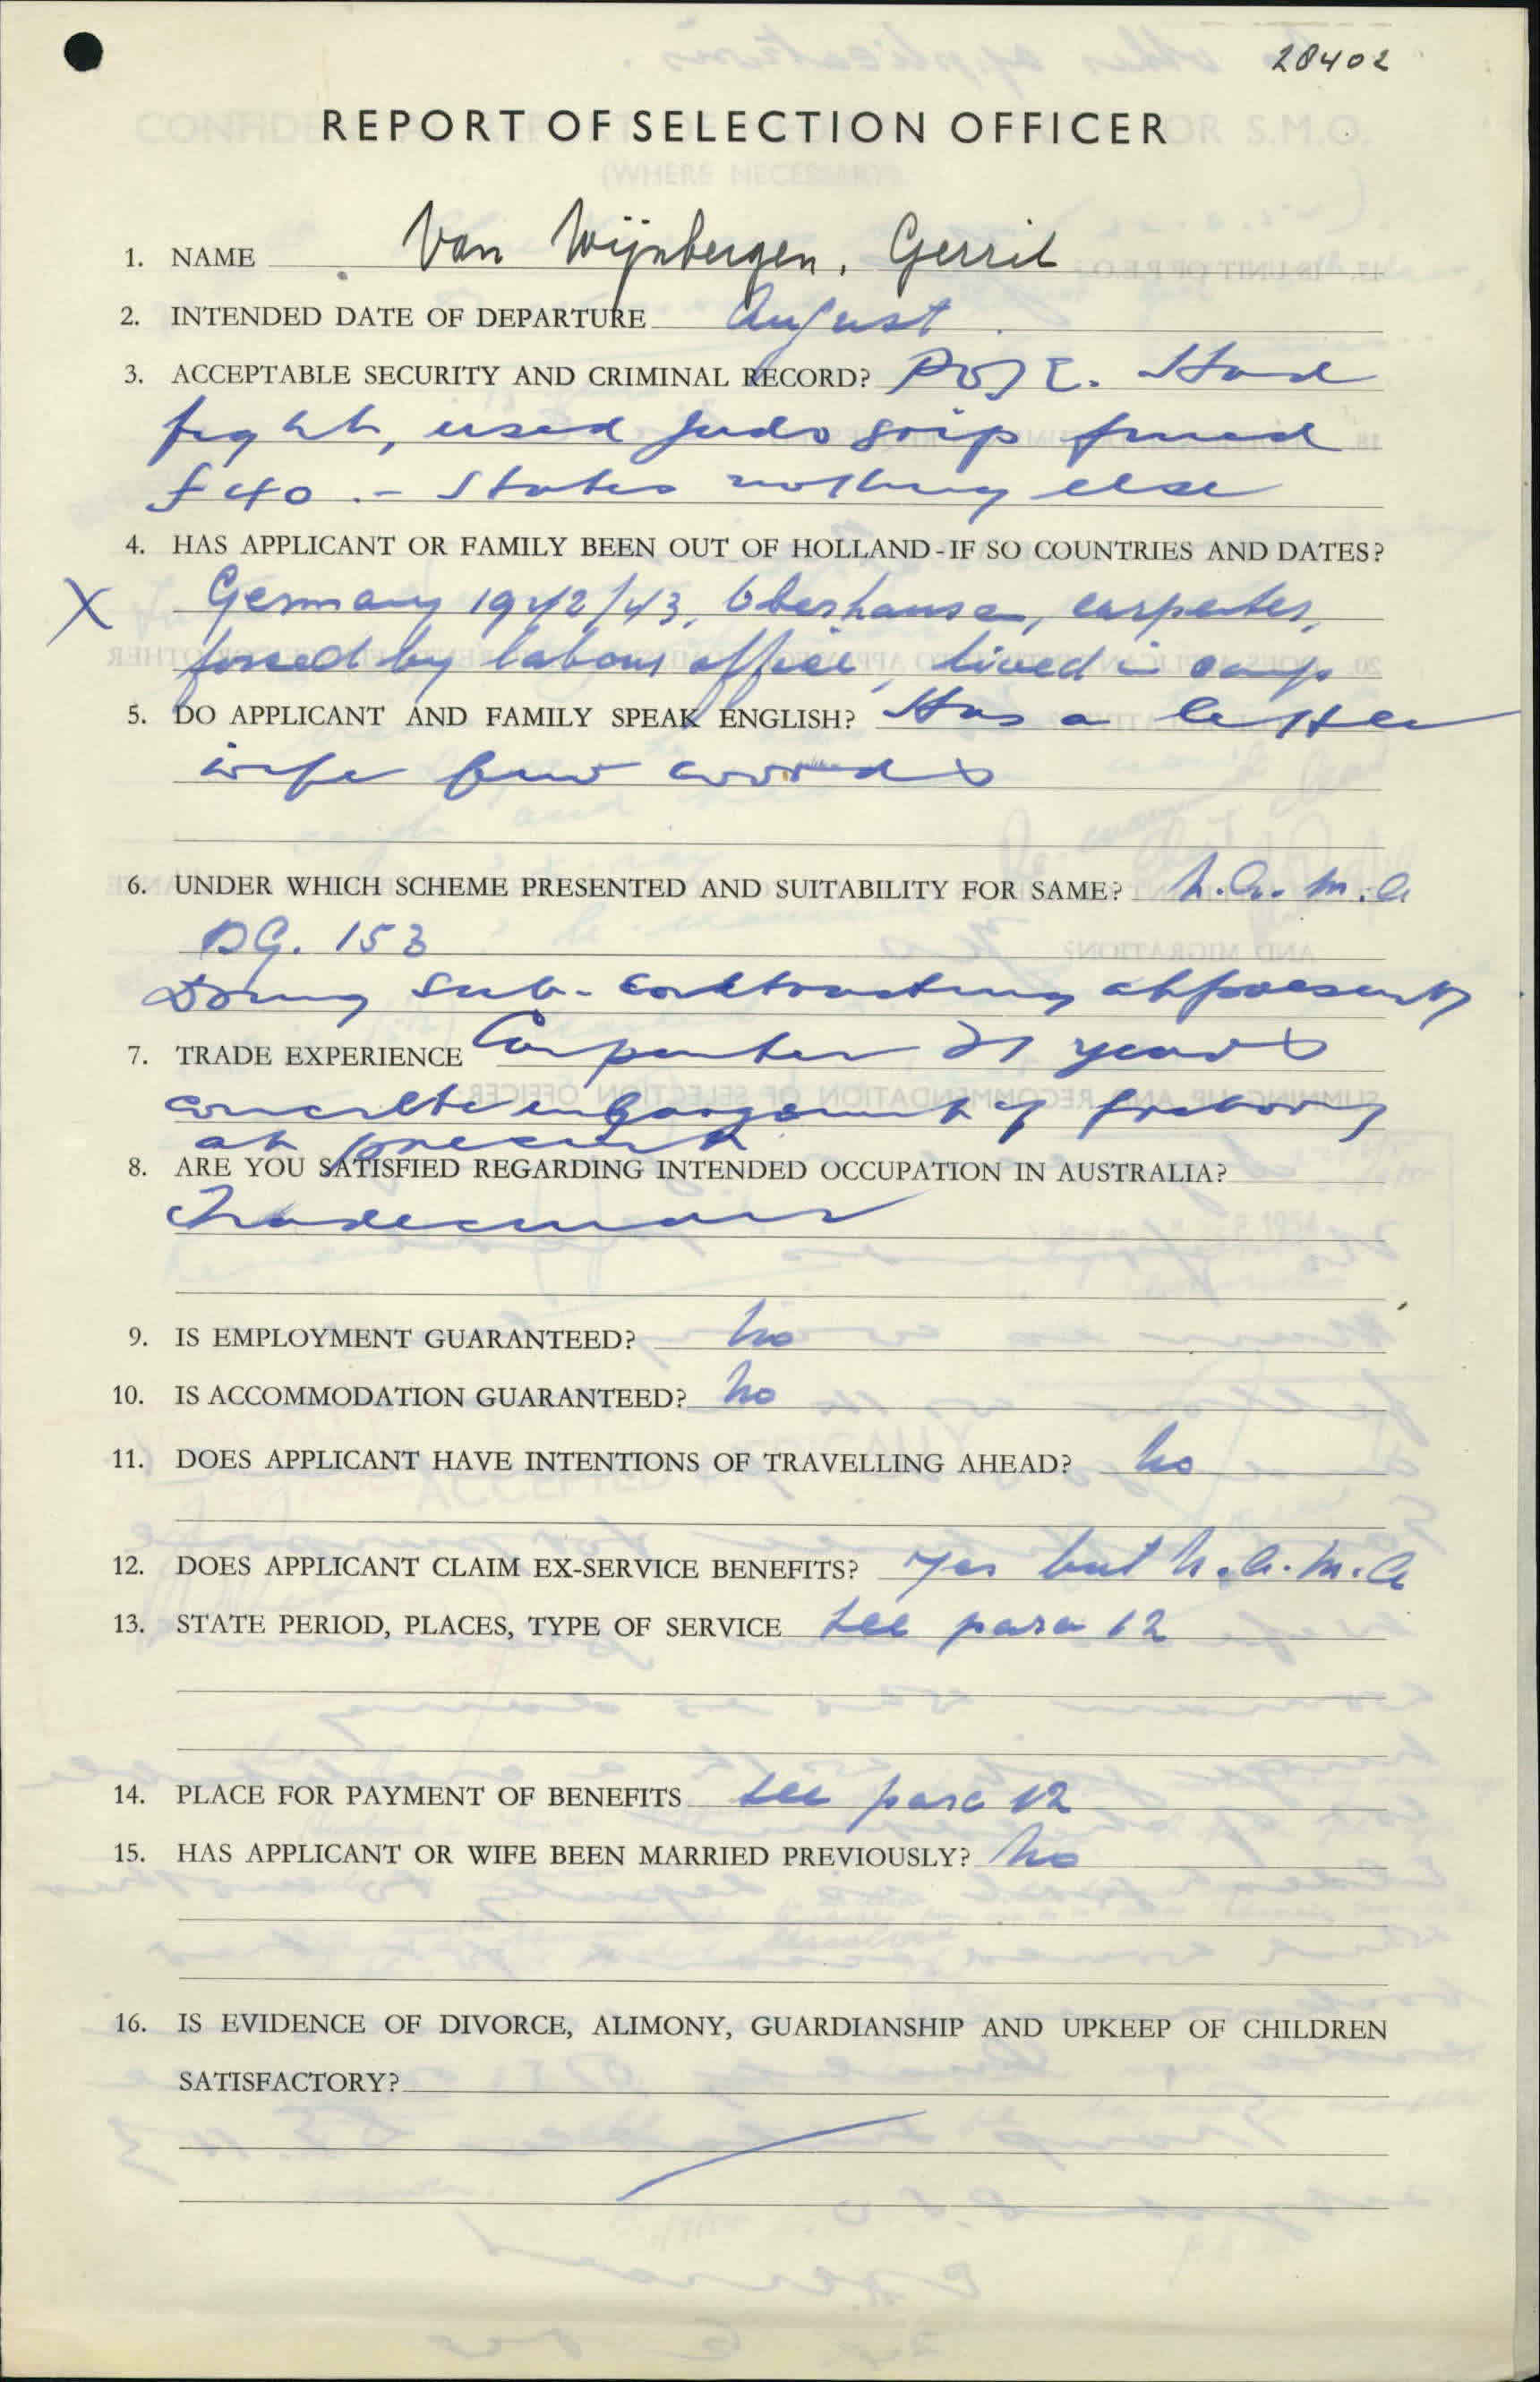 28402
REPORT OF SELECTION OFFICER
1. NAME Van Wijnbergen, Gerrit
2. INTENDED DATE OF DEPARTURE August
3. ACCEPTABLE SECURITY AND CRIMINAL RECORD? Had
fight, used judo grip fined
f 40.- States nothing else
4. HAS APPLICANT OR FAMILY BEEN OUT OF HOLLAND-IF SO COUNTRIES AND DATES?
X Germany 1942/43, Oberhausen, carpenter,
forced by labour office, lived in camp
5. DO APPLICANT AND FAMILY SPEAK ENGLISH? Has a little
wife few words
6. UNDER WHICH SCHEME PRESENTED AND SUITABILITY FOR SAME? N.A.M.A
DG. 153
Doing sub-contracting at present
7. TRADE EXPERIENCE Carpenter 21 years
concrete enlargement of factory
at present
8. ARE YOU SATISFIED REGARDING INTENDED OCCUPATION IN AUSTRALIA?
Tradesman
9. IS EMPLOYMENT GUARANTEED? No
10. IS ACCOMMODATION GUARANTEED? No
11. DOES APPLICANT HAVE INTENTIONS OF TRAVELLING AHEAD? No
12. DOES APPLICANT CLAIM EX-SERVICE BENEFITS? Yes but N.A.M.A
13. STATE PERIOD, PLACES, TYPE OF SERVICE see para 12
14. PLACE FOR PAYMENT OF BENEFITS see para 12
15. HAS APPLICANT OR WIFE BEEN MARRIED PREVIOUSLY? No
16. IS EVIDENCE OF DIVORCE, ALIMONY, GUARDIANSHIP AND UPKEEP OF CHILDREN
SATISFACTORY?